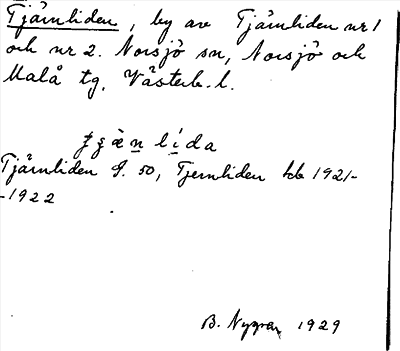 Tjärnliden, by av Tjärnliden nr 1
och nr 2. Norsjö sn, Norsjö och
Malå tg. Västerb. l.
Tjärnliden S. 50, Tjernliden kb 1921-
-1922
B. Nygren 1929